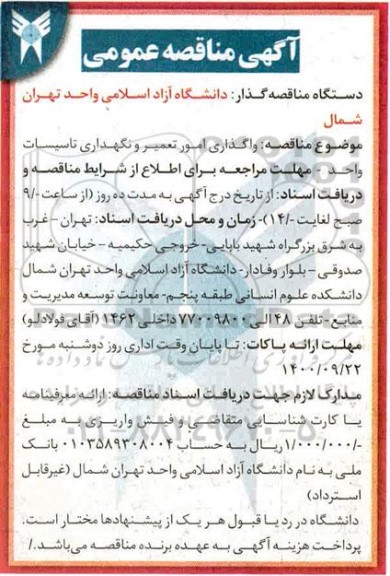 آگهی مناقصه عمومی
دستگاه مناقصه‌گذار: دانشگاه آزاد اسلامی واحد تهران
شمال
موضوع مناقصه: واگذاری امور تعمیر و نگهداری تاسیسات
واحد. مهلت مراجعه برای اطلاع از شرایط مناقصه و
دریافت اسناد: از تاریخ درج آگهی به مدت ده روز (از ساعت ۹/۰
صبح لغایت ۱۴/۰)- زمان و محل دریافت اسناد: تهران – غرب
به شرق بزرگراه شهید بابایی- خروجی حکیمیه – خیابان شهید
صدوقی – بلوار وفادار- دانشگاه آزاد اسلامی واحد تهران شمال
دانشکده علوم انسانی طبقه پنجم- معاونت توسعه مدیریت و
منابع- تلفن ۴۸ الی ۷۷۰۰۹۸۰۰ داخلی ۱۱۴۶۲ (آقای فولادلو)
مهلت ارائه پاکات: تا پایان وقت اداری روز دوشنبه مورخ
۱۴۰۰/۰۹/۲۲
مدارک لازم جهت دریافت اسناد مناقصه: ارائه معرفینامه
یا کارت شناسایی متقاضی و فیش واریزی به مبلغ
۱/۰۰۰/۰۰۰/- ریال به حساب ۰۱۰۳۵۸۹۳۰۸۰۰۴ بانک
ملی به نام دانشگاه آزاد اسلامی واحد تهران شمال (غیرقابل
استرداد)
دانشگاه در رد یا قبول هر یک از پیشنهادها مختار است.
پرداخت هزینه آگهی به عهده برنده مناقصه می‌باشد./